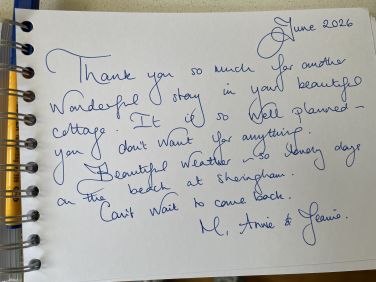 June 2026
Thank you so much for another
wonderful stay in your beautiful
cottage. It is so well planned -
you don't want for anything.
Beautiful weather - so lovely days
on the beach at Sheringham.
Can't wait to come back.
M, Annie & Jeanie.